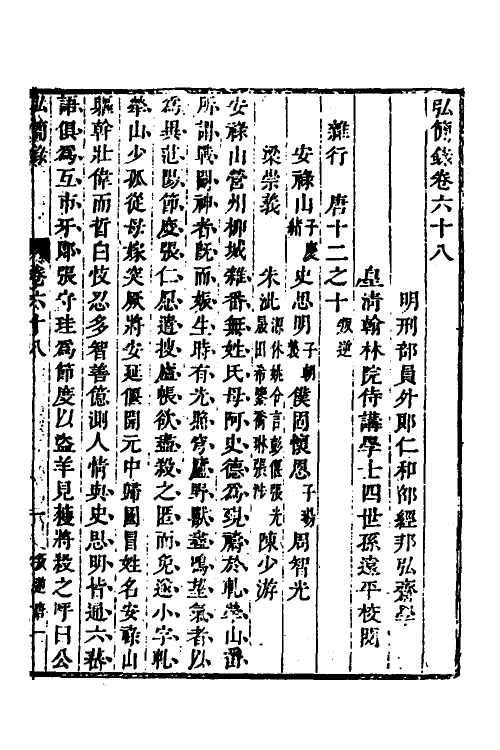 弘簡錄卷六十八
明刑部員外郎仁和邵經邦弘齋學
皇淸翰林院侍講學士四世孫遠平校閱
雜行 唐十二之十 叛逆
安祿山 子慶緒 史思明 子朝義 僕固懷恩 子瑒 周智光
梁崇義 朱泚 源休姚令言彭偃張光晟田希鑒喬琳張涉 陳少游
安祿山營州柳城雜番無姓氏母阿史德為覡禱於軋犖山番
所謂戰鬭神者旣而娠生時有光照穹廬野獸盡鳴望氣者以
為異范陽節度張仁愿遣搜廬帳欲盡殺之匿而免遂小字軋
犖山少孤從母嫁突厥將安延偃開元中歸國冒姓名安祿山
軀幹壯偉而晳白忮忍多智善億測人情與史思明皆通六番
語俱為互市牙郎張守珪為節度以盜羊見獲將殺之呼曰公
弘簡錄 卷六十八 一 叛逆 一